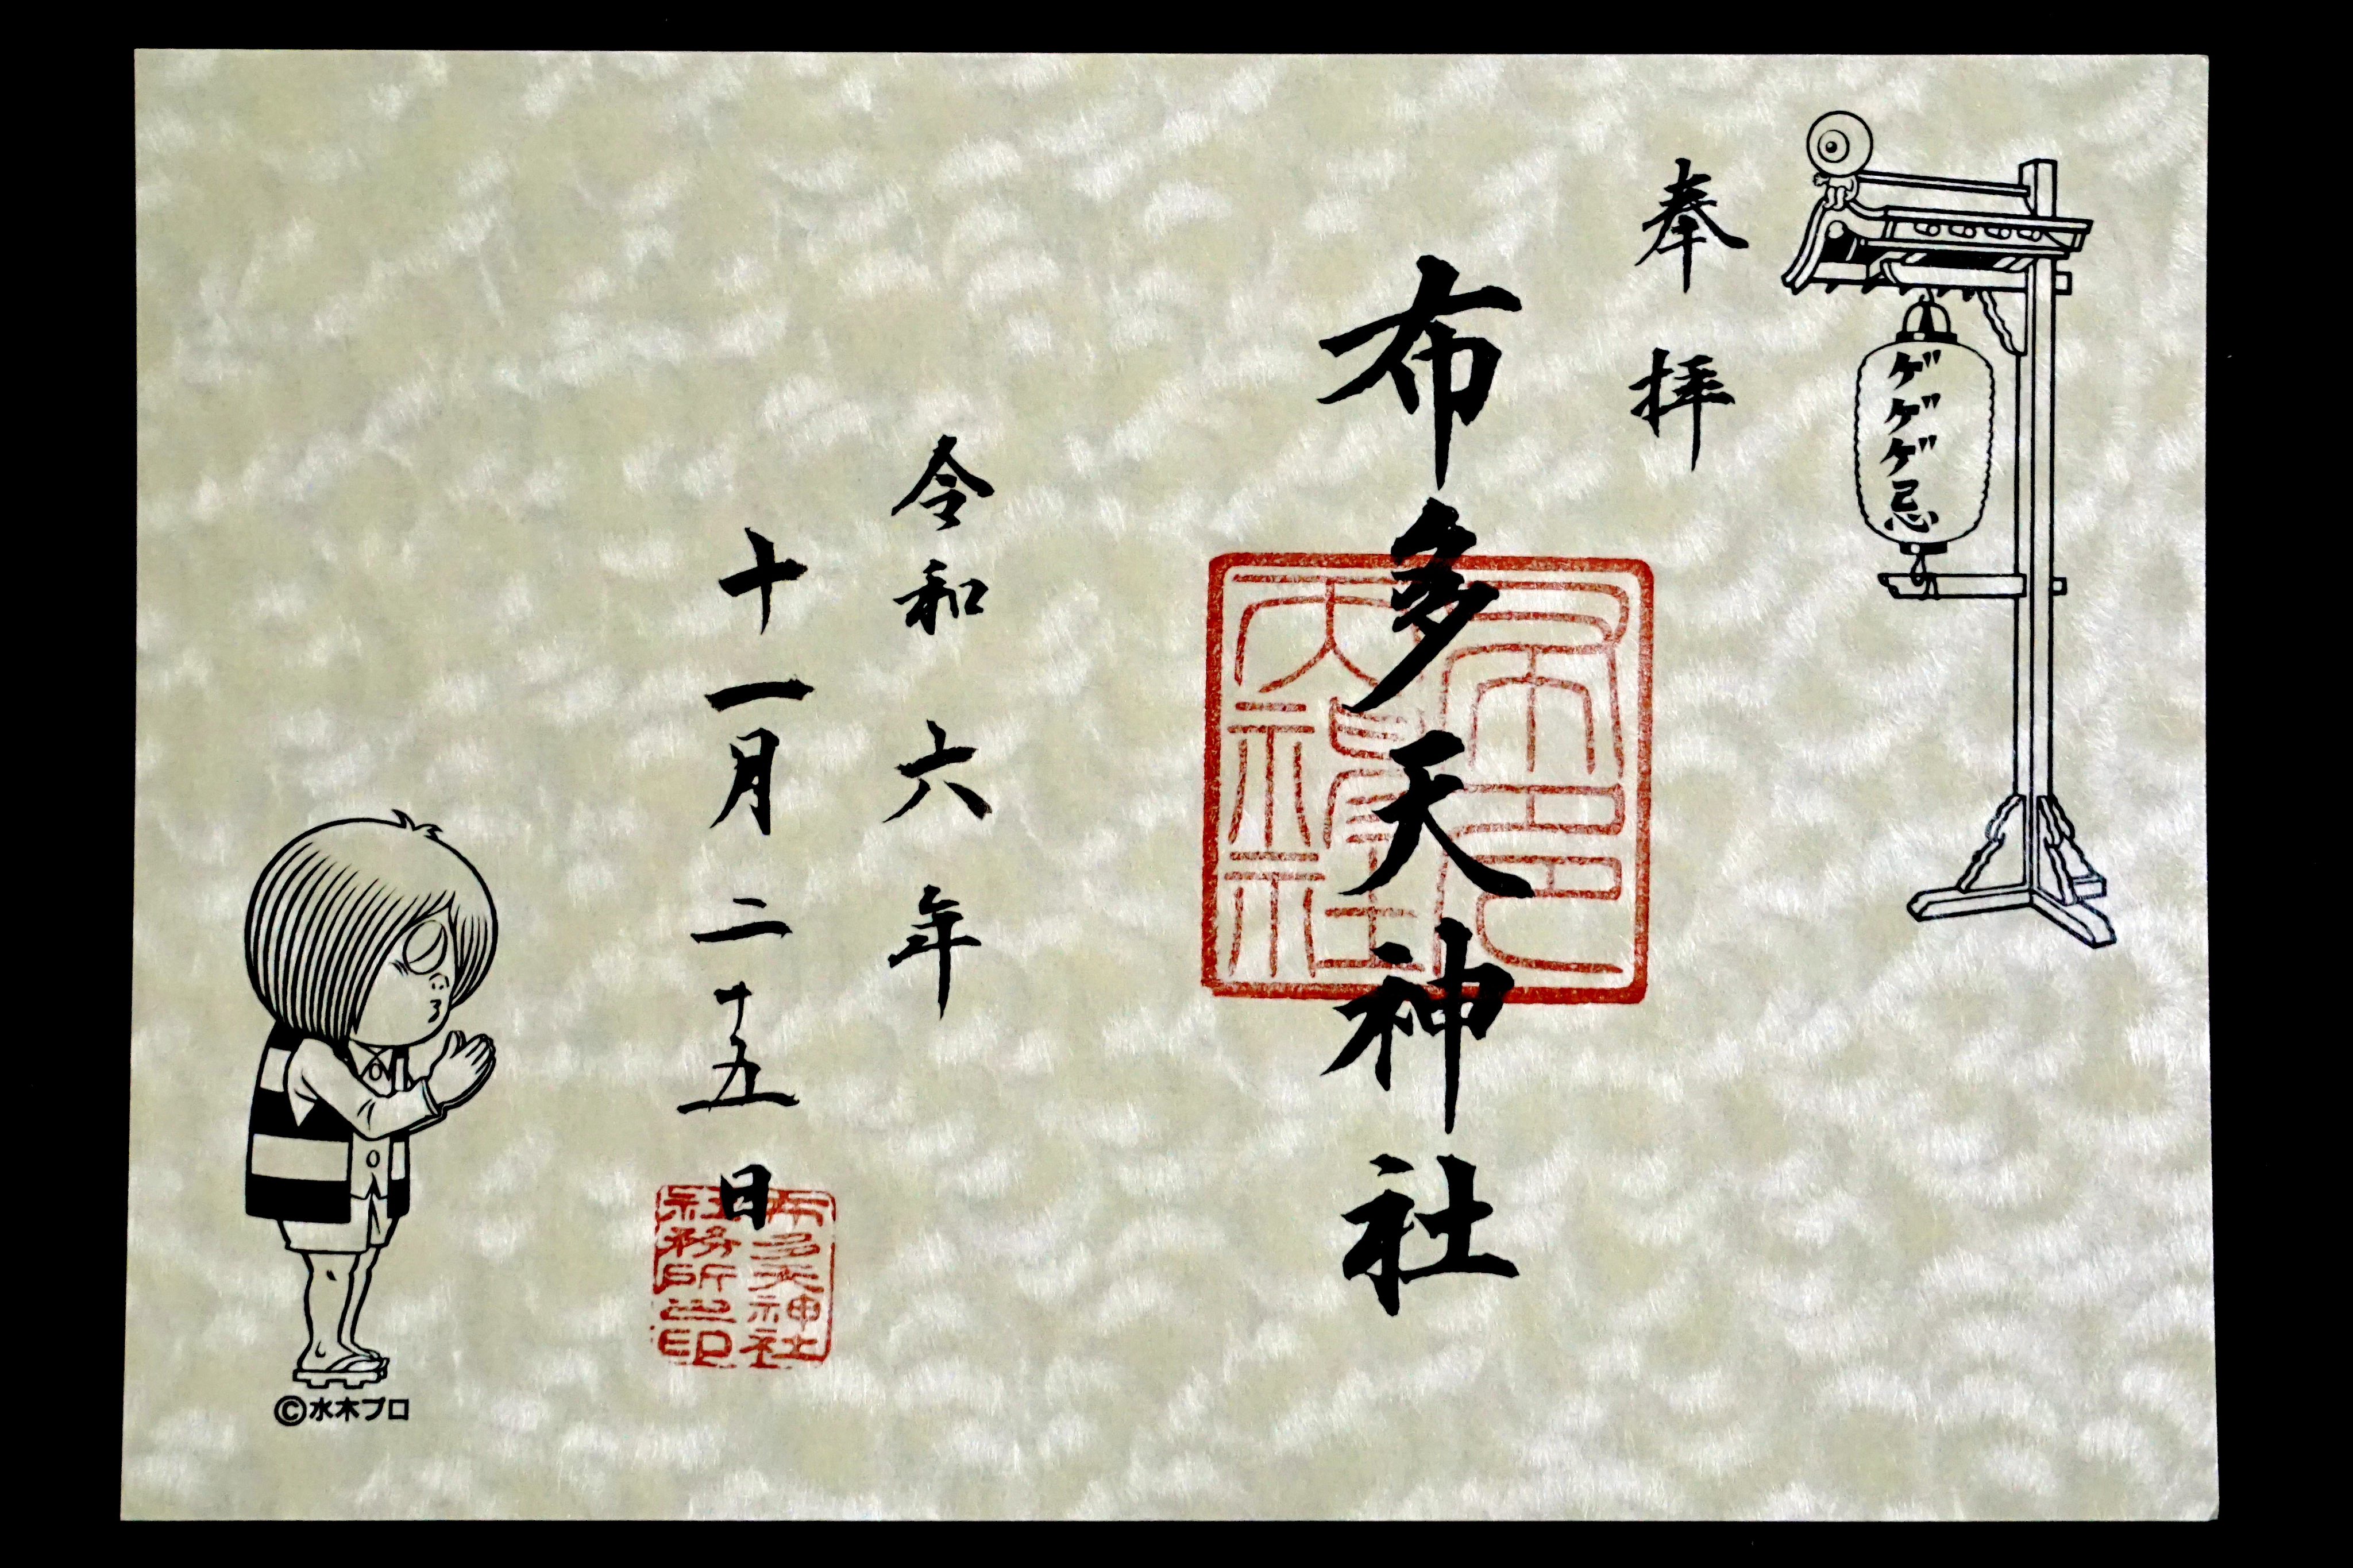 ゲゲゲ忌
奉拝
布多天神社
令和六年
十一月二十五日
布多天神社
社務所之印
©水木プロ